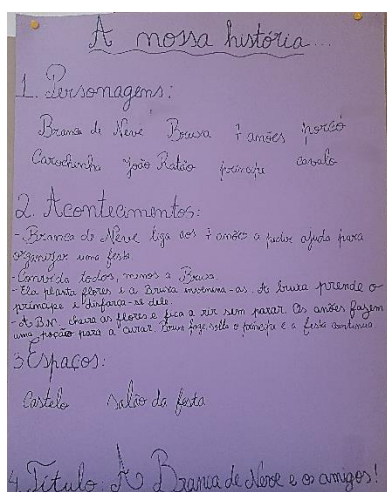 A nossa história...
1. Personagens:
Branca de Neve Bruxa 7 anões porco
Carochinha João Ratão príncipe cavalo
2. Acontecimentos:
- Branca de Neve liga aos 7 anões a pedir ajuda para
organizar uma festa.
- Convida todos, menos a Bruxa.
- Ela planta flores e a Bruxa envenena-as. A bruxa prende o
príncipe e disfarça-se dele.
- A BN cheira as flores e fica a rir sem parar. Os anões fazem
uma poção para a curar. Bruxa foge, solta o príncipe e a festa continua.
3 Espaços:
Castelo salão da festa
4. Título: A Branca de Neve e os amigos!